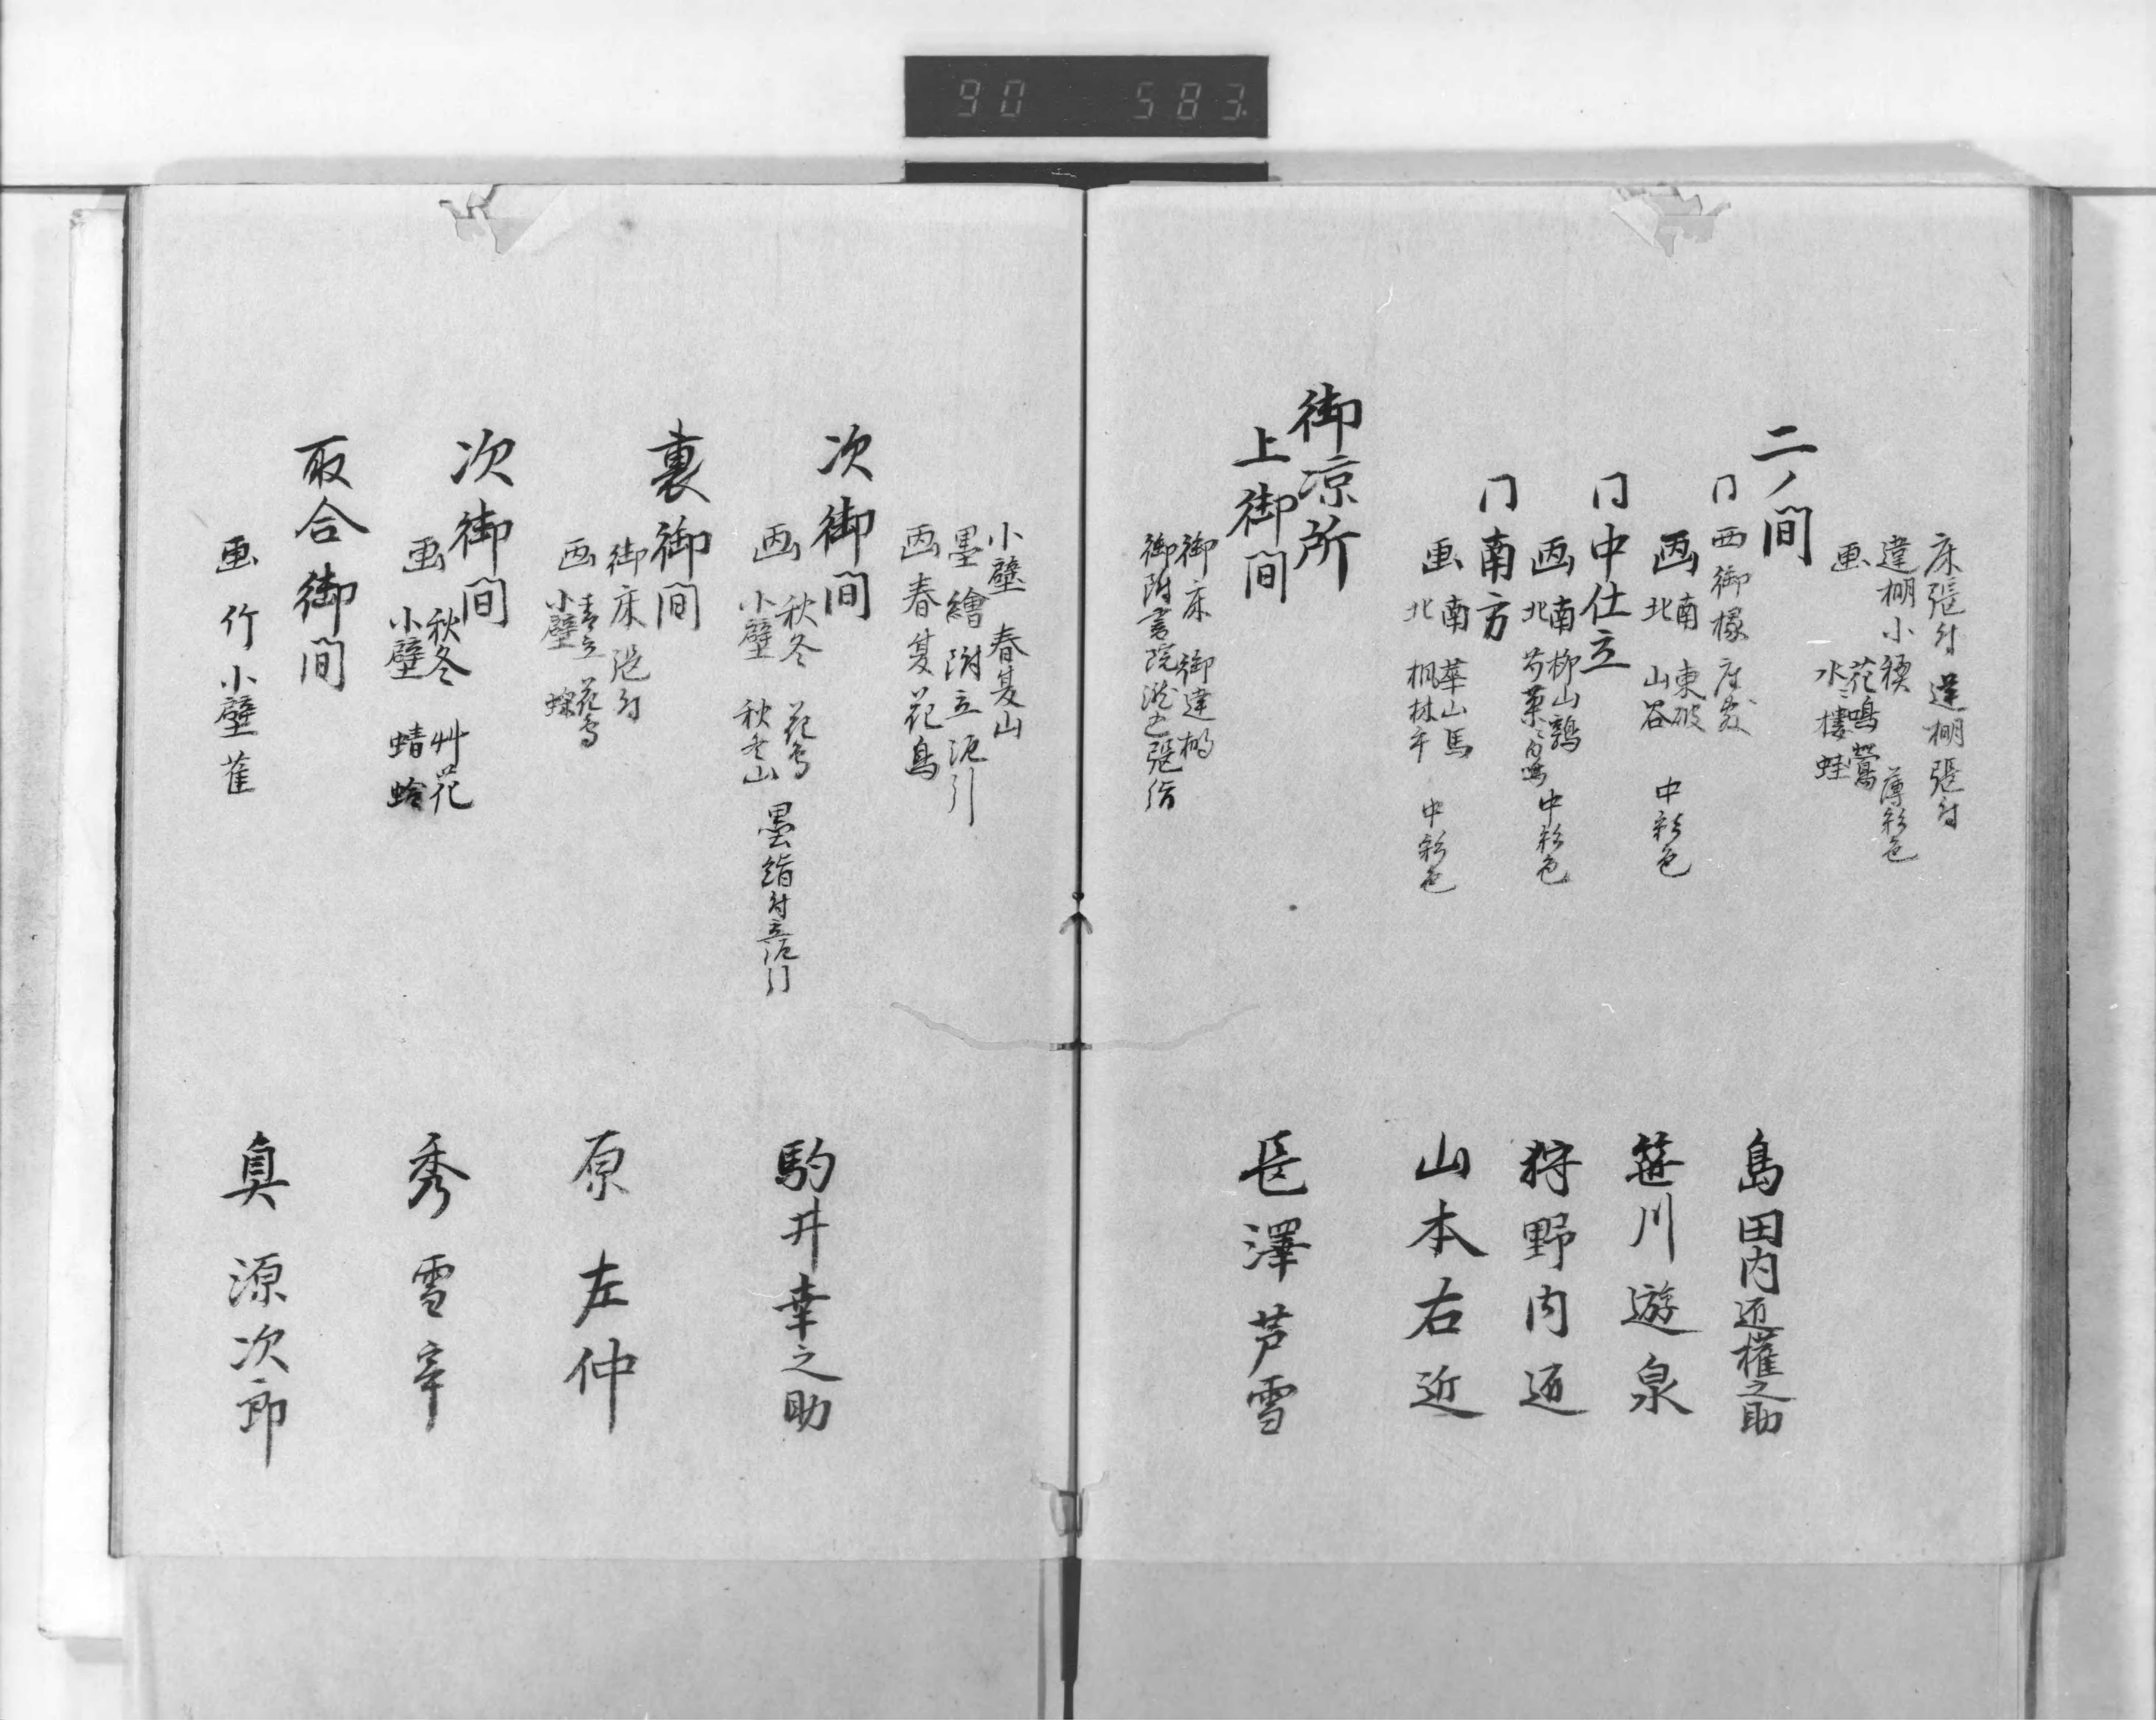 90 583
床張付 違棚張付
違棚小襖 薄彩色
画 花鳴鶯
水ニ棲蛙
二ノ間
门西御椽座敷
島田内匠権之助
画 南 東破
北 山谷
中彩色
笹川遊泉
门中仕立
画 南 柳山鵲
北 芍薬ニ
中彩色
狩野内匠
门南方
画 南 華山馬
北 桃林牛
中彩色
山本右近
御凉所
上御間
長澤芦雪
御床 御違棚
御附書院 張付
小壁 春夏山
墨繪附立泥引
画 春夏花鳥
次御間
駒井幸之助
画 秋冬 花鳥
小壁 秋冬山
墨繪付立泥引
裏御間
御床張付
原左仲
画 花鳥
小壁 蝶
次御間
秀雪亭
画 秋冬 艸花
小壁 蜻蛉
取合御間
画 竹 小壁 雀
奥源次郎